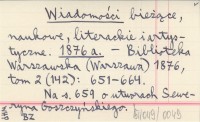 Wiadomości bieżące,
naukowe, literackie i artys-
tyczne. 1876 a. – Biblioteka
Warszawska (Warszawa) 1876,
tom 2 (142): 651-664.
Na s. 659 o utworach Sewe-
ryna Goszczyńskiego.
BZ